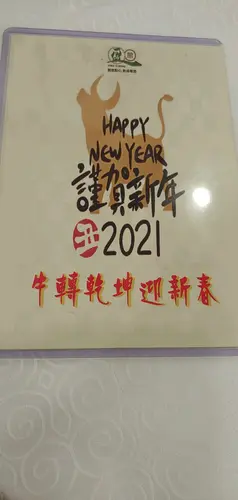 HAPPY
NEW YEAR
謹賀新年
丑 2021
牛轉乾坤迎新春